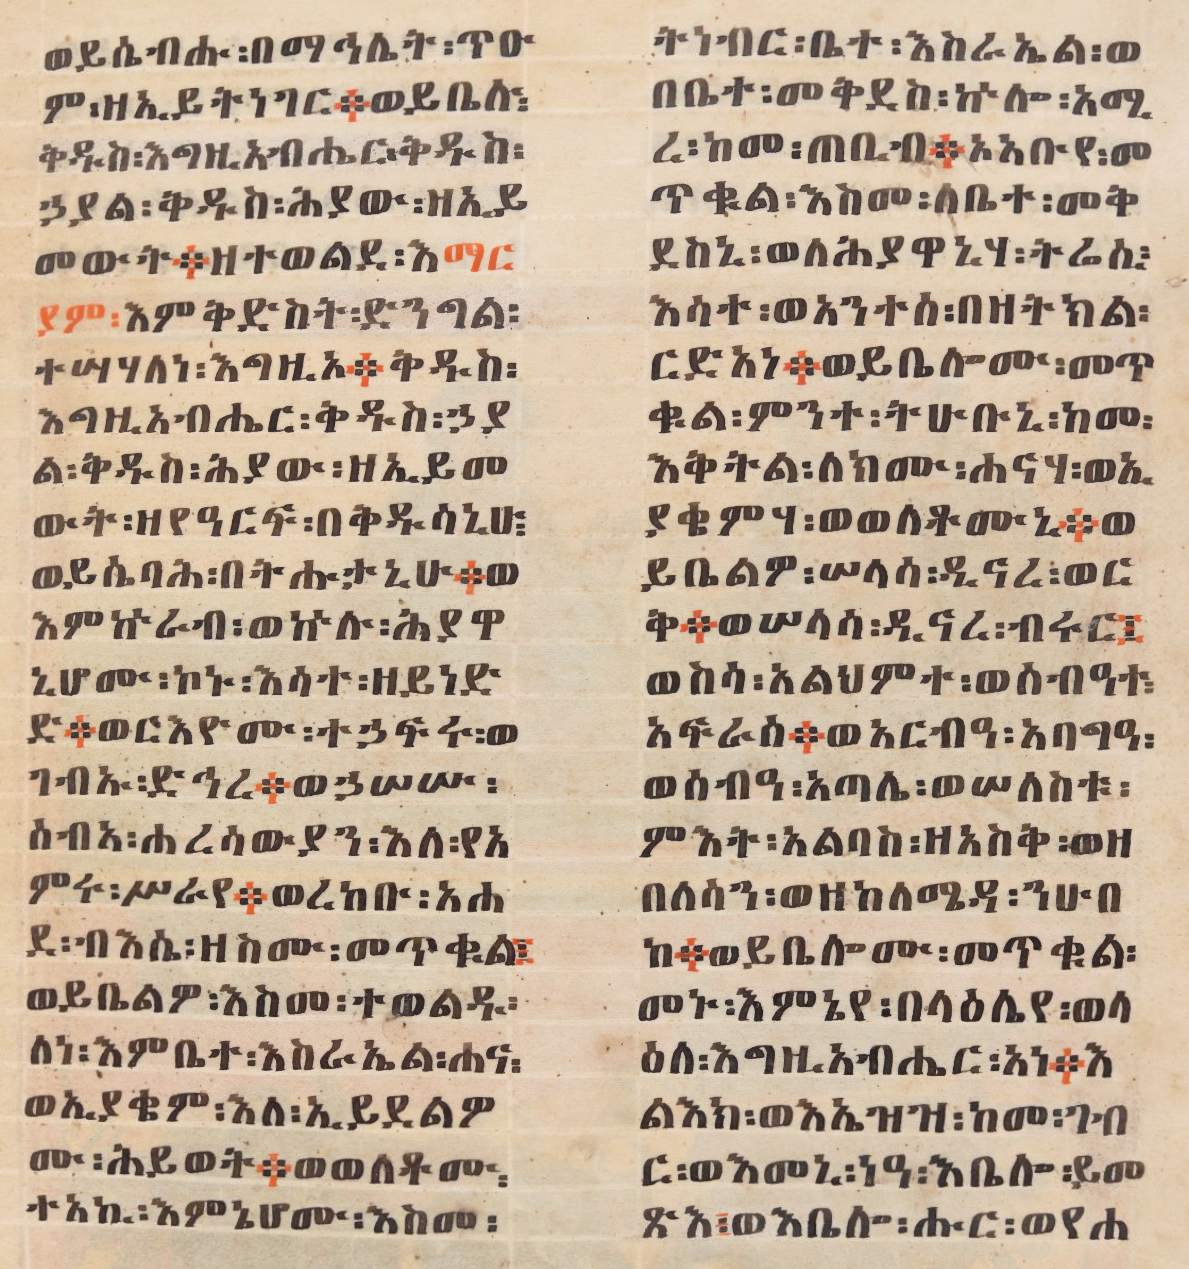 ወይሴብሑ፡በማኅሌት፡ጥዑ
ም፡ዘኢይትነገር።ወይቤሉ፡
ቅዱስ፡እግዚአብሔር፡ቅዱስ፡
ኃያል፡ቅዱስ፡ሕያው፡ዘኢይ
መውት።ዘተወልደ፡እማር
ያም፡እምቅድስት፡ድንግል፡
ተሣሃለነ፡እግዚአ።ቅዱስ፡
እግዚአብሔር፡ቅዱስ፡ኃያ
ል፡ቅዱስ፡ሕያው፡ዘኢይመ
ውት፡ዘየዓርፍ፡በቅዱሳኒሁ፡
ወይሴባሕ፡በትሑታኒሁ።ወ
እምኵራብ፡ወኵሉ፡ሕያዋ
ኒሆሙ፡ኮኑ፡እሳተ፡ዘይነድ
ድ።ወርእዮሙ፡ተኃፍሩ፡ወ
ገብኡ፡ድኅረ።ወኃሠሡ፡
ሰብአ፡ሐረሳውያን፡እለ፡የአ
ምሩ፡ሥራየ።ወረከቡ፡አሐ
ደ፡ብእሴ፡ዘስሙ፡መጥቍል፡
ወይቤልዎ፡እስመ፡ተወልዱ፡
ለነ፡እምቤተ፡እስራኤል፡ሐና፡
ወኢያቄም፡እለ፡ኢይደልዎ
ሙ፡ሕይወት።ወወለቶሙ፡
ተአኪ፡እምኔሆሙ፡እስመ፡
ትነብር፡ቤተ፡እስራኤል፡ወ
በቤተ፡መቅደስ፡ኵሎ፡አሚ
ረ፡ከመ፡ጠቢብ።ኦአቡየ፡መ
ጥቍል፡እስመ፡ለቤተ፡መቅ
ደስኒ፡ወለሕያዋኒሃ፡ትሬሲ፡
እሳተ፡ወአንተሰ፡በዘትክል፡
ርድአነ።ወይቤሎሙ፡መጥ
ቍል፡ምንተ፡ትሁቡኒ፡ከመ፡
እቅትል፡ለክሙ፡ሐናሃ፡ወኢ
ያቄምሃ፡ወወለቶሙኒ።ወ
ይቤልዎ፡ሠላሳ፡ዲናረ፡ወር
ቅ።ወሠላሳ፡ዲናረ፡ብሩር፤
ወስሳ፡አልህምተ፡ወሰብዓተ፡
አፍራሰ።ወአርብዓ፡አባግዓ፡
ወሰብዓ፡አጣሌ፡ወሠለስቱ፡
ምእት፡አልባስ፡ዘአስቅ፡ወዘ
በለሳን፡ወዘከለሜዳ፡ንሁበ
ከ።ወይቤሎሙ፡መጥቍል፡
መኑ፡እምኔየ፡በላዕሌየ፡ወላ
ዕለ፡እግዚአብሔር፡አነ።እ
ልእክ፡ወእኤዝዝ፡ከመ፡ገብ
ር፡ወእመኒ፡ነዓ፡እቤሎ፡ይመ
ጽእ፤ወእቤሎ፡ሑር፡ወየሐ